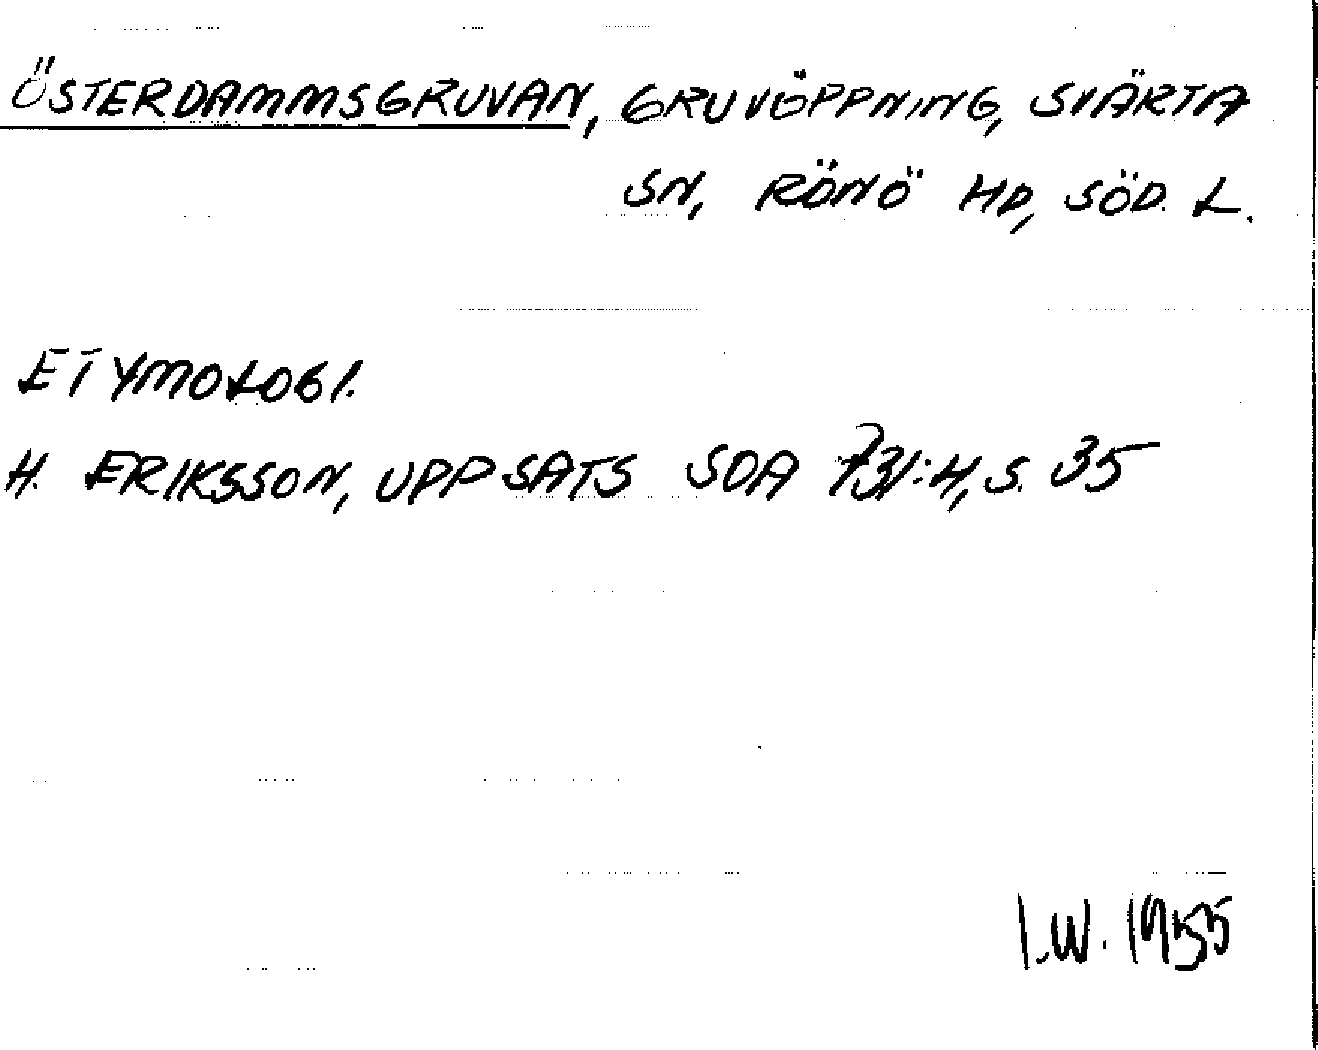 ÖSTERDAMMSGRUVAN, GRUVÖPPNING, SVÄRTA
SN, RÖNÖ HD, SÖD. L.
ETYMOLOGI.
H. ERIKSSON, UPPSATS SOA 731:4, S. 35
I.W. 1955